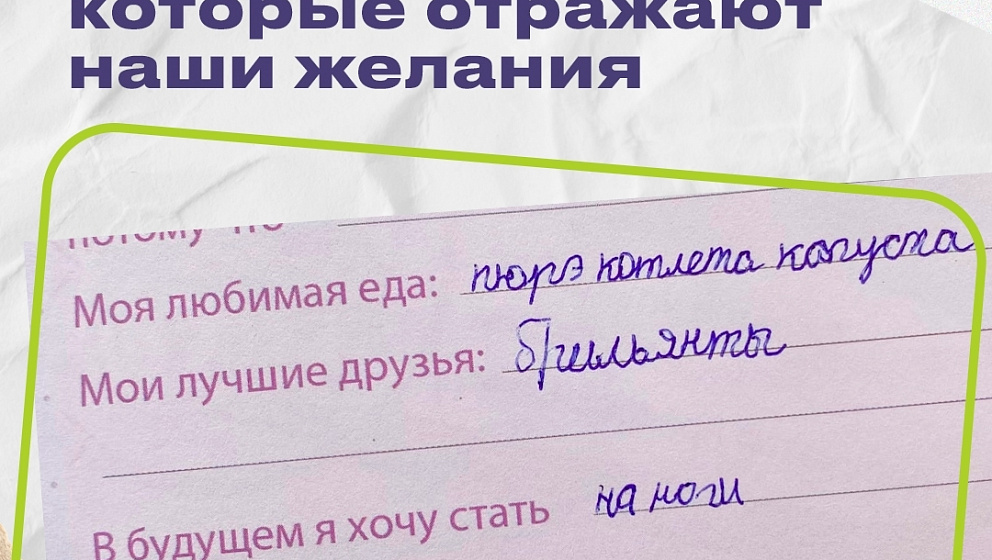 которые отражают
наши желания
потому что
Моя любимая еда: пюрэ котлета капуста
Мои лучшие друзья: брильянты
В будущем я хочу стать на ноги